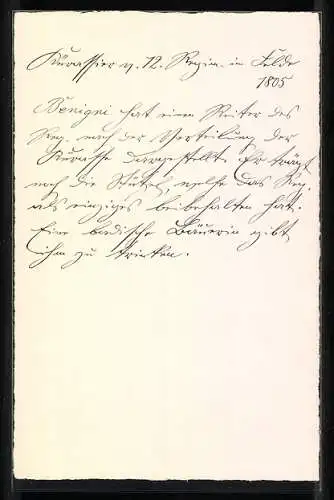 Kürassier v. 12. Regim. im Felde
1805
Benigni hat einen Reiter des
Reg. nach der Verteilung der
Kürasse dargestellt. Er trägt
noch die Stiefel, welche das Reg.
als einziges beibehalten hat.
Eine badische Bäuerin gibt
ihm zu trinken.